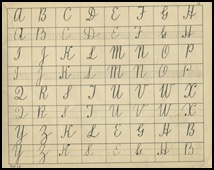 A B C D E F G H
A B C D E F G H
I J K L M N O P
I J K L M N O P
Q R S T U V W X
Q R S T U V W X
Y Z K L E G H B
Y Z K L E G H B